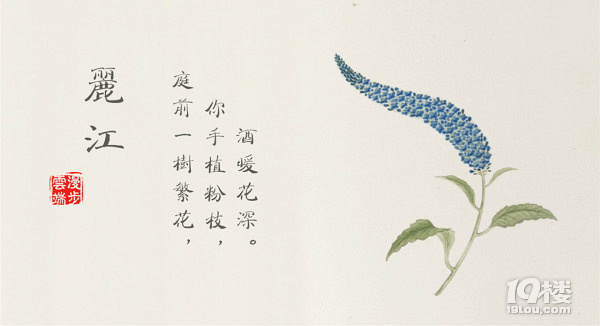 麗江
漫步
雲端
庭前一樹繁花，
你手植粉枝，
酒暖花深。
19楼
19lou.com